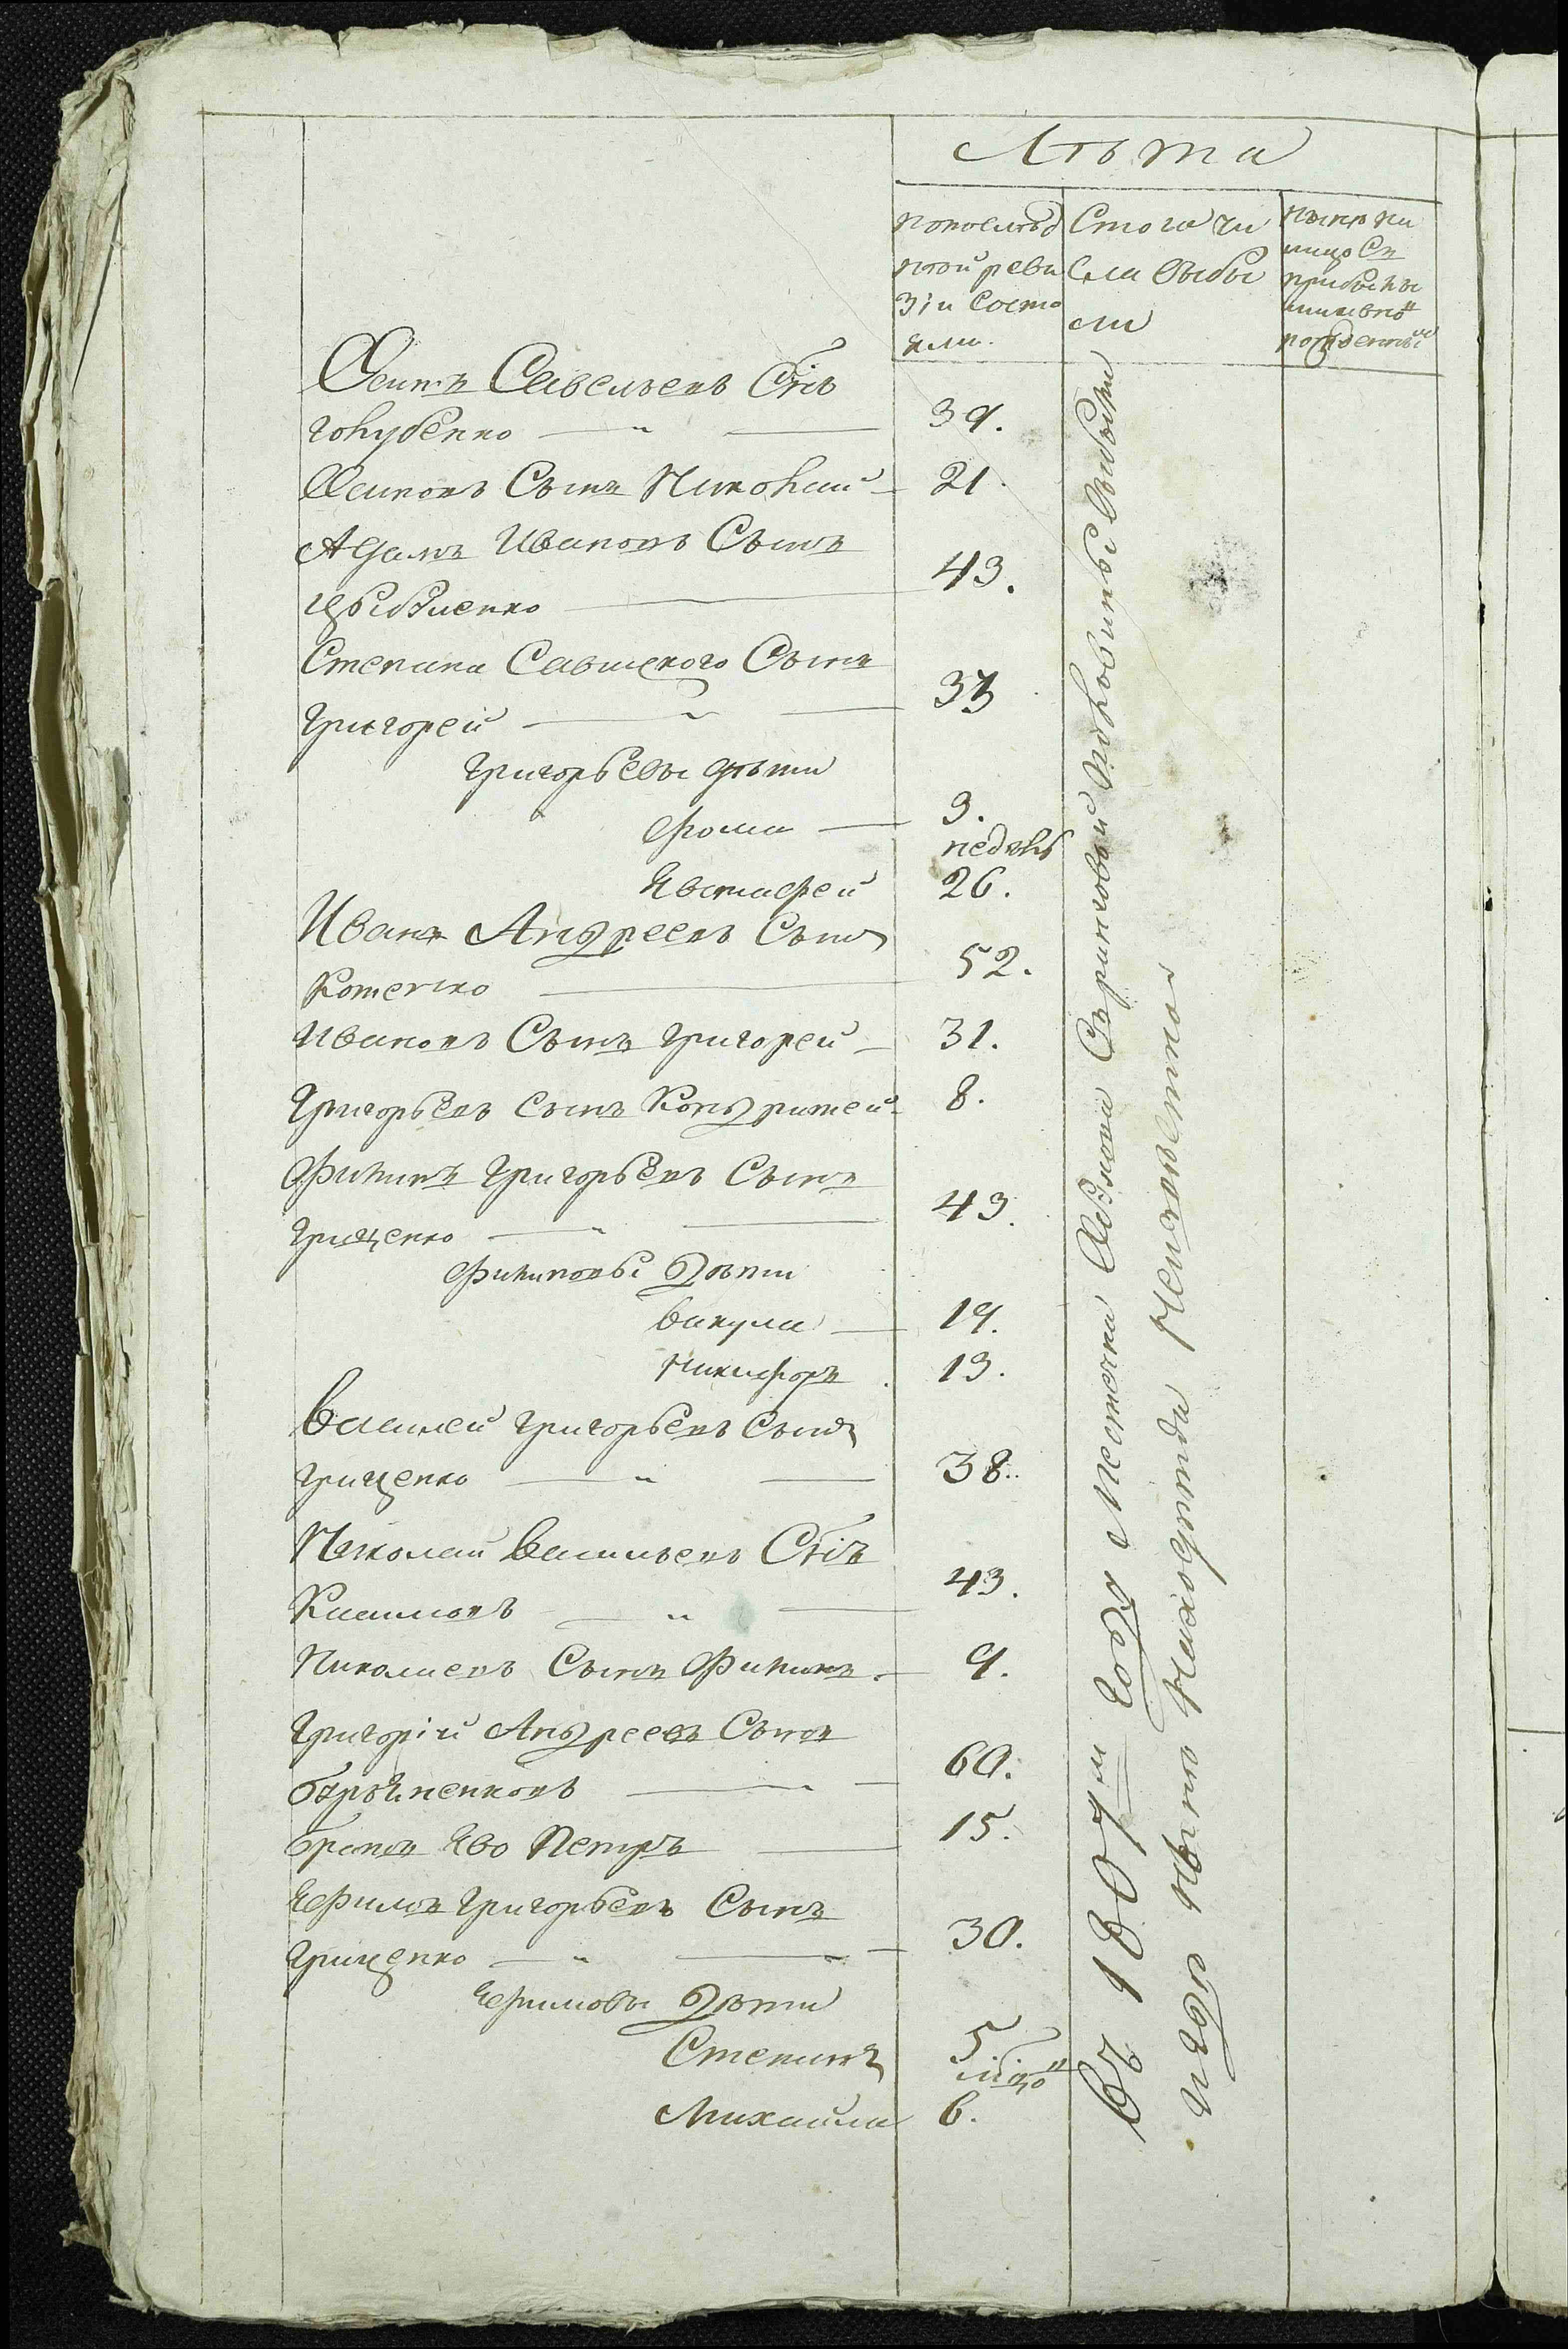 Лѣта
попослѣд
ней реви
зіи состо
яли.
Стогачи
сла выбы
ли
нынѣ на
лицо съ
прибылы
ми
Осипъ Савельевъ Снъ
голубенко 39.
Осиповъ Сынъ Николай 21.
Адамъ Ивановъ Сынъ
43.
Степана Савицкого Сынъ
Григорей 33
Григорьевы дѣти
Фома 3.
недѣль
Евстафей 26.
Иванъ Андреевъ Сынъ
Котенко 52.
Ивановъ Сынъ Григорей 31.
Григорьевъ сынъ Кондратей 8.
Филипъ Григорьевъ Сынъ
Грищенко 43.
Филиповы дѣти
Вакула 19.
Никифоръ 13.
Василей Григорьевъ Сынъ
Грищенко 38.
Николай Васильевъ Снъ
Касимовъ 43.
Николаевъ Сынъ Филипъ 9.
Григорій Андреевъ Сынъ
60.
братъ Ево Петръ 15.
Ефимъ Григорьевъ Сынъ
Грищенко 30.
Ефимовы дѣти
Степанъ 5
Михайла 6.
Въ 1807м годѣ местечка выбыли
и где нѣтъ неизвестно